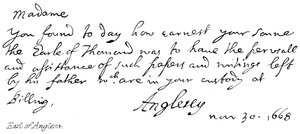 Madame
You found to day how earnest your sonne
the Earle of Thomond was to haue the perusall
and assistance of such papers and writings left
by his father wch are in your custody at
Billing,
Anglesey
nou 30. 1668
Earl of Anglesey